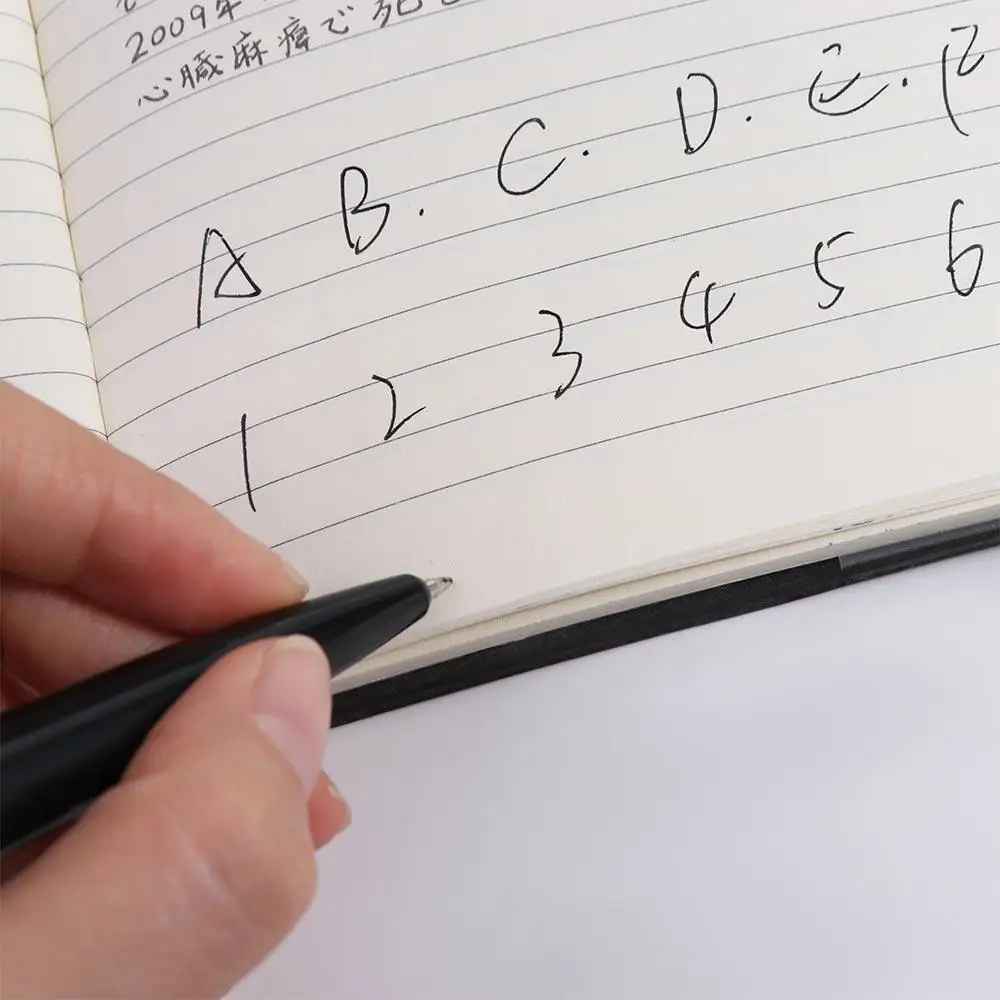 2009年
心臓麻痺で死
A B. C. D. E. F
1 2 3 4 5 6